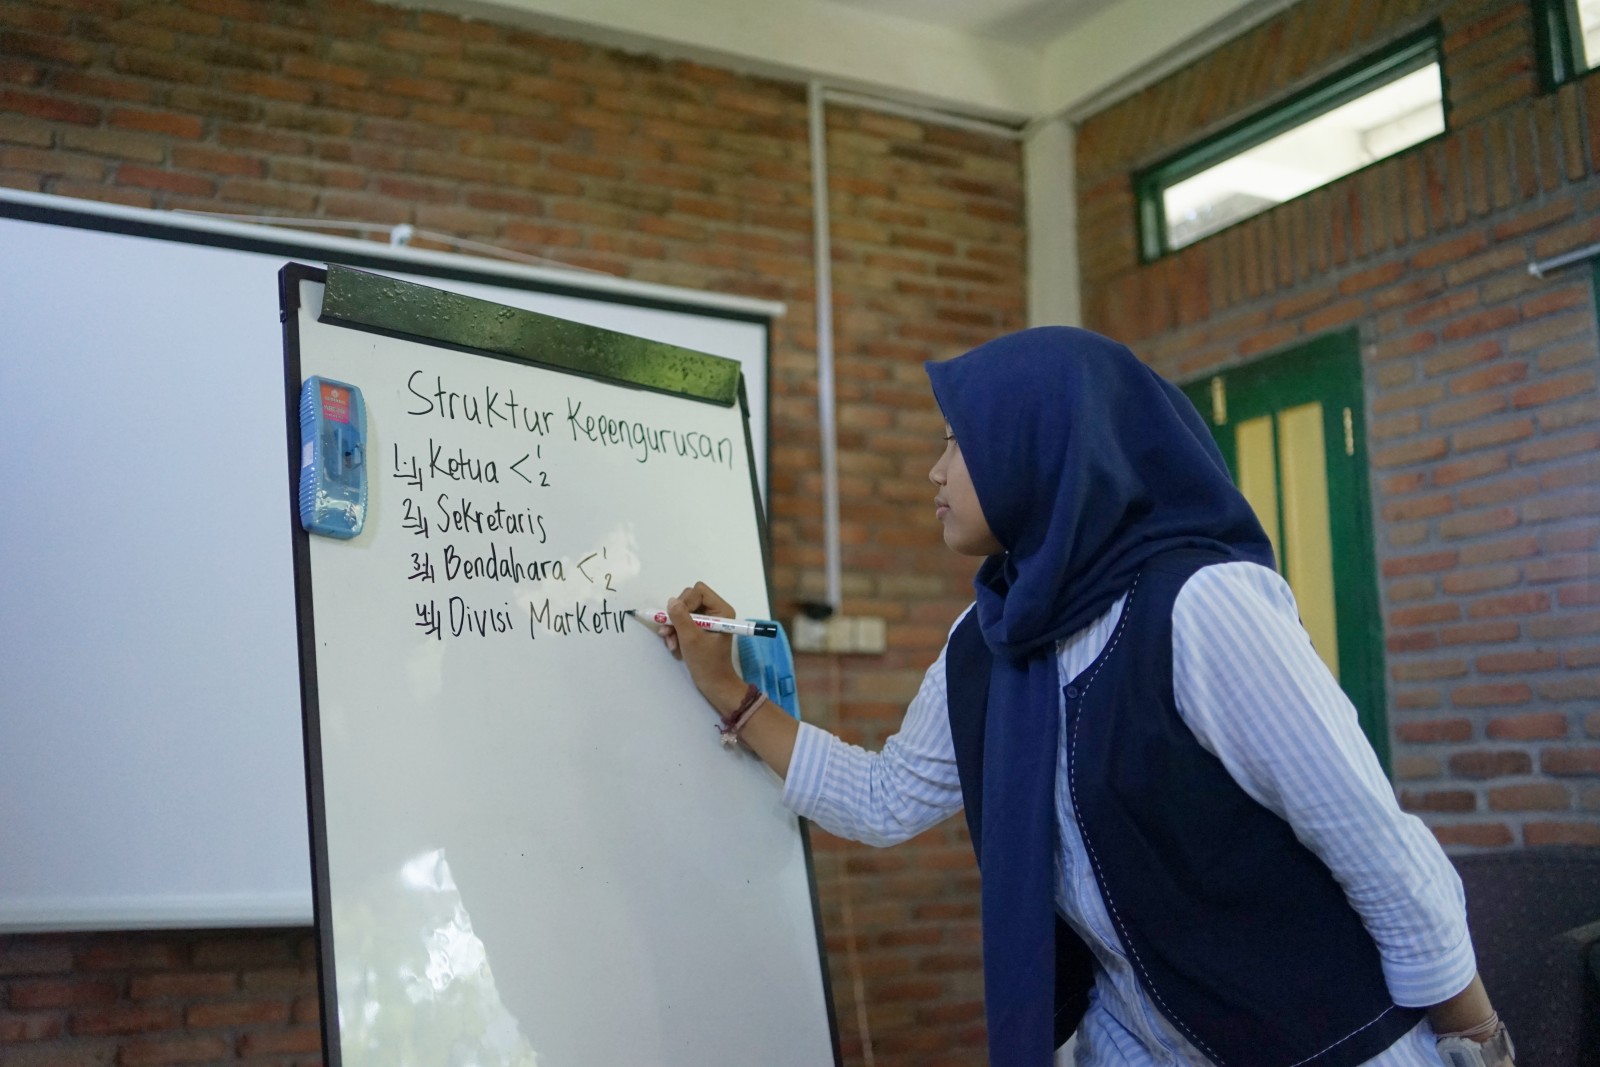 Struktur Kepengurusan
1. Ketua < 1 2
2. Sekretaris
3. Bendahara < 1 2
4. Divisi Marketin